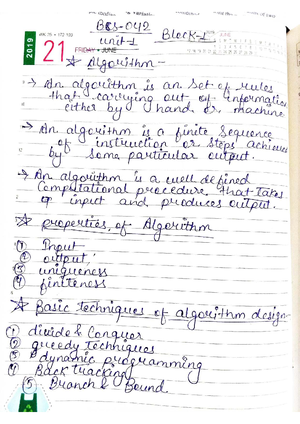 BCS-042
unit-1 Block-1
2019
WK 25 • 172-193
21
FRIDAY • JUNE
☆ Algorithm-
→ An algorithm is an set of rules
that carrying out of informatics
either by hand or machine
→ An algorithm is a finite sequence
of instruction or steps achieves
by some particular output.
→ An algorithm is a well defined
Computational procedure that takes
input and produces output.
☆ properties of Algorithm
① Input
② output,
③ uniqueness
④ finiteness
☆ Basic techniques of algorithm design
① divide & Conquer
② greedy techniques
③ dynamic programming
④ Back tracking
⑤ Branch & Bound